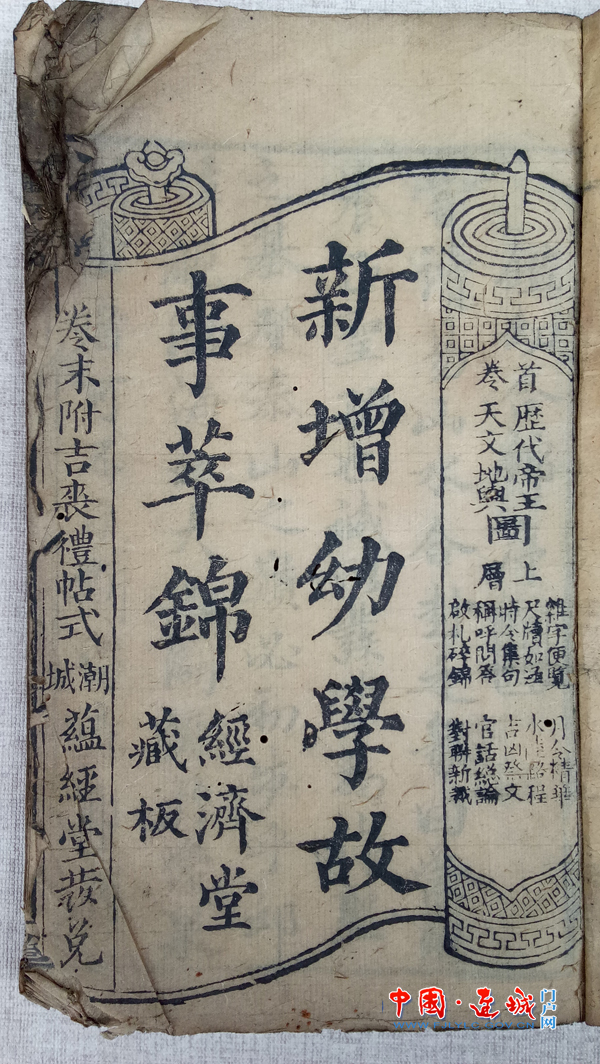 首卷
歴代帝王
天文地輿
圖
上層
雜字便覧
尺牘如函
時令集句
稱呼問答
啟札碎錦
月令精華
水陸路程
吉凶祭文
官話総論
對聯新裁
新增幼學故
事萃錦
經濟堂
藏板
卷末附吉喪禮帖式
潮城
蘊經堂發兌
中国·连城
门户网